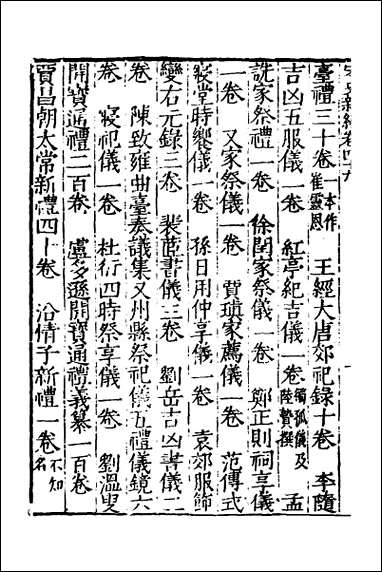 臺禮三十卷 一本作崔靈恩 王經大唐郊祀錄十卷 李隨
吉凶五服儀一卷 紅亭紀吉儀一卷 獨孤儀及陸贄撰 孟
詵家祭禮一卷 徐閏家祭儀一卷 鄭正則祠享儀
一卷 又家祭儀一卷 賈頊家薦儀一卷 范傳式
寢堂時饗儀一卷 孫日用仲享儀一卷 袁郊服飾
變右元錄三卷 裴茝書儀三卷 劉岳吉凶書儀二
卷 陳致雍曲臺奏議集又州縣祭祀儀五禮儀鏡六
卷 寢祀儀一卷 杜衍四時祭享儀一卷 劉溫叟
開寶通禮二百卷 盧多遜開寶通禮義纂一百卷
賈昌朝太常新禮四十卷 沿情子新禮一卷 不知名